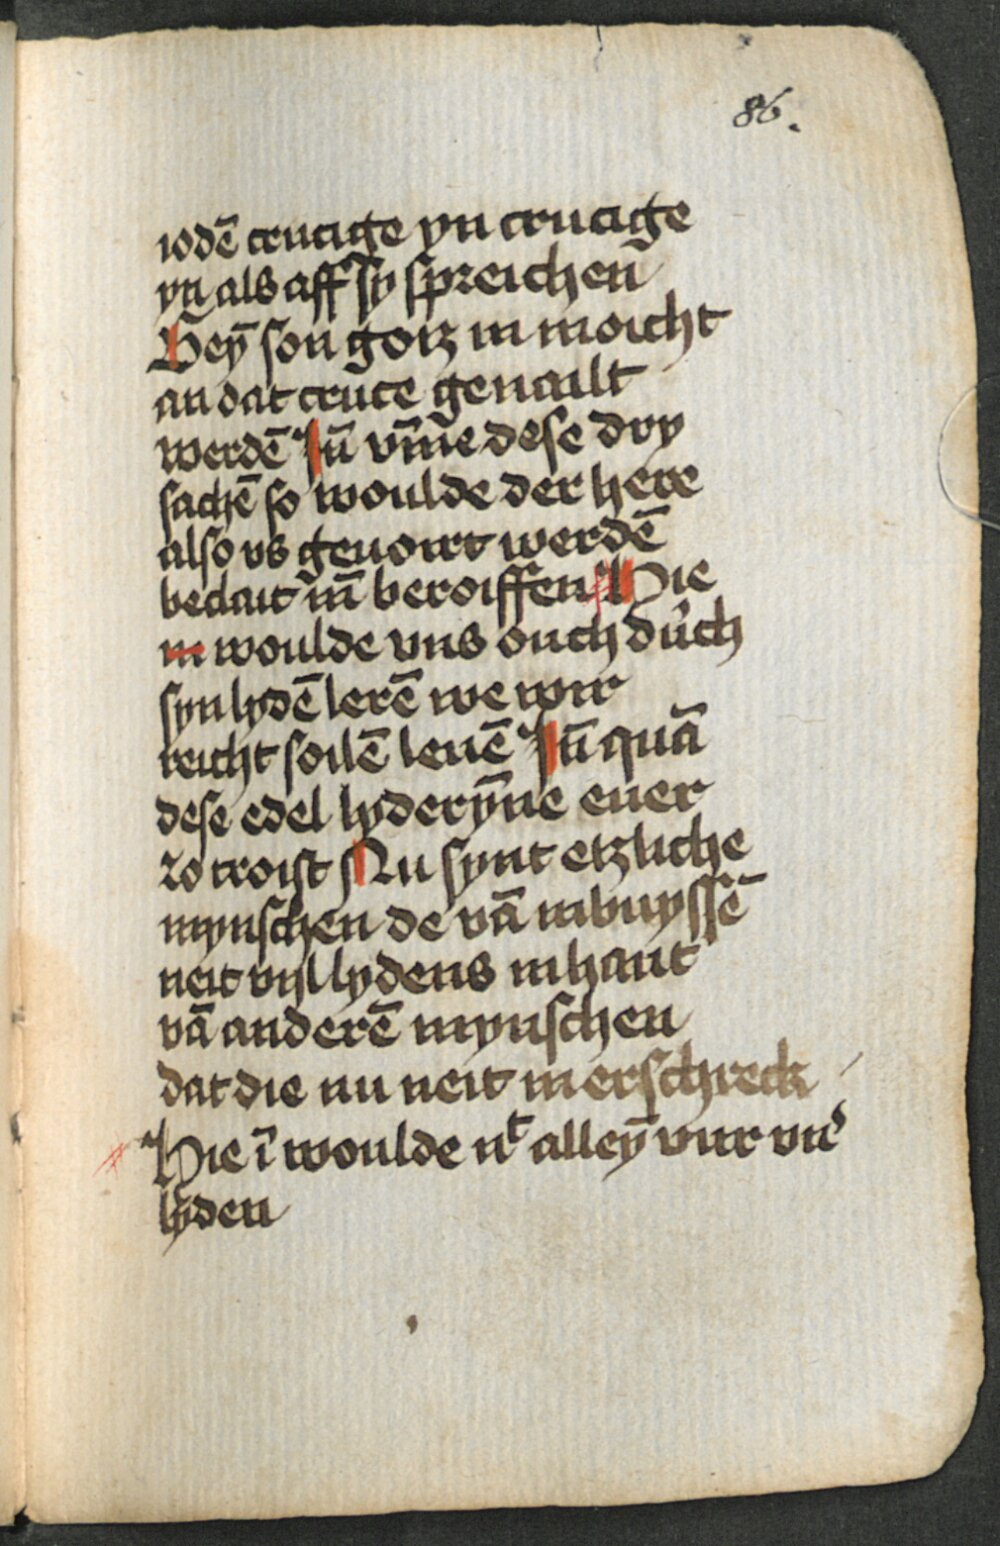 86.
iodē crucige yn crucige
yn als aff sy spreichen
Hey son gotz in moicht
an dat cruce genailt
werdē In vm̄e dese dry
sachē so woulde der here
also vs geuoirt werdē
bedait in beroiffen Hie
in woulde vns ouch durch
syn lydē lerē we wir
reicht soilē leuē In quā
dese edel lyderȳne euer
zo troist Nu synt etzliche
mynschen de vā inbuyssē
neit vijl lydens in haut
vā anderē mynschen
dat die nu neit in erschreck
Hie ī woulde nt alleȳ vur vns
lyden